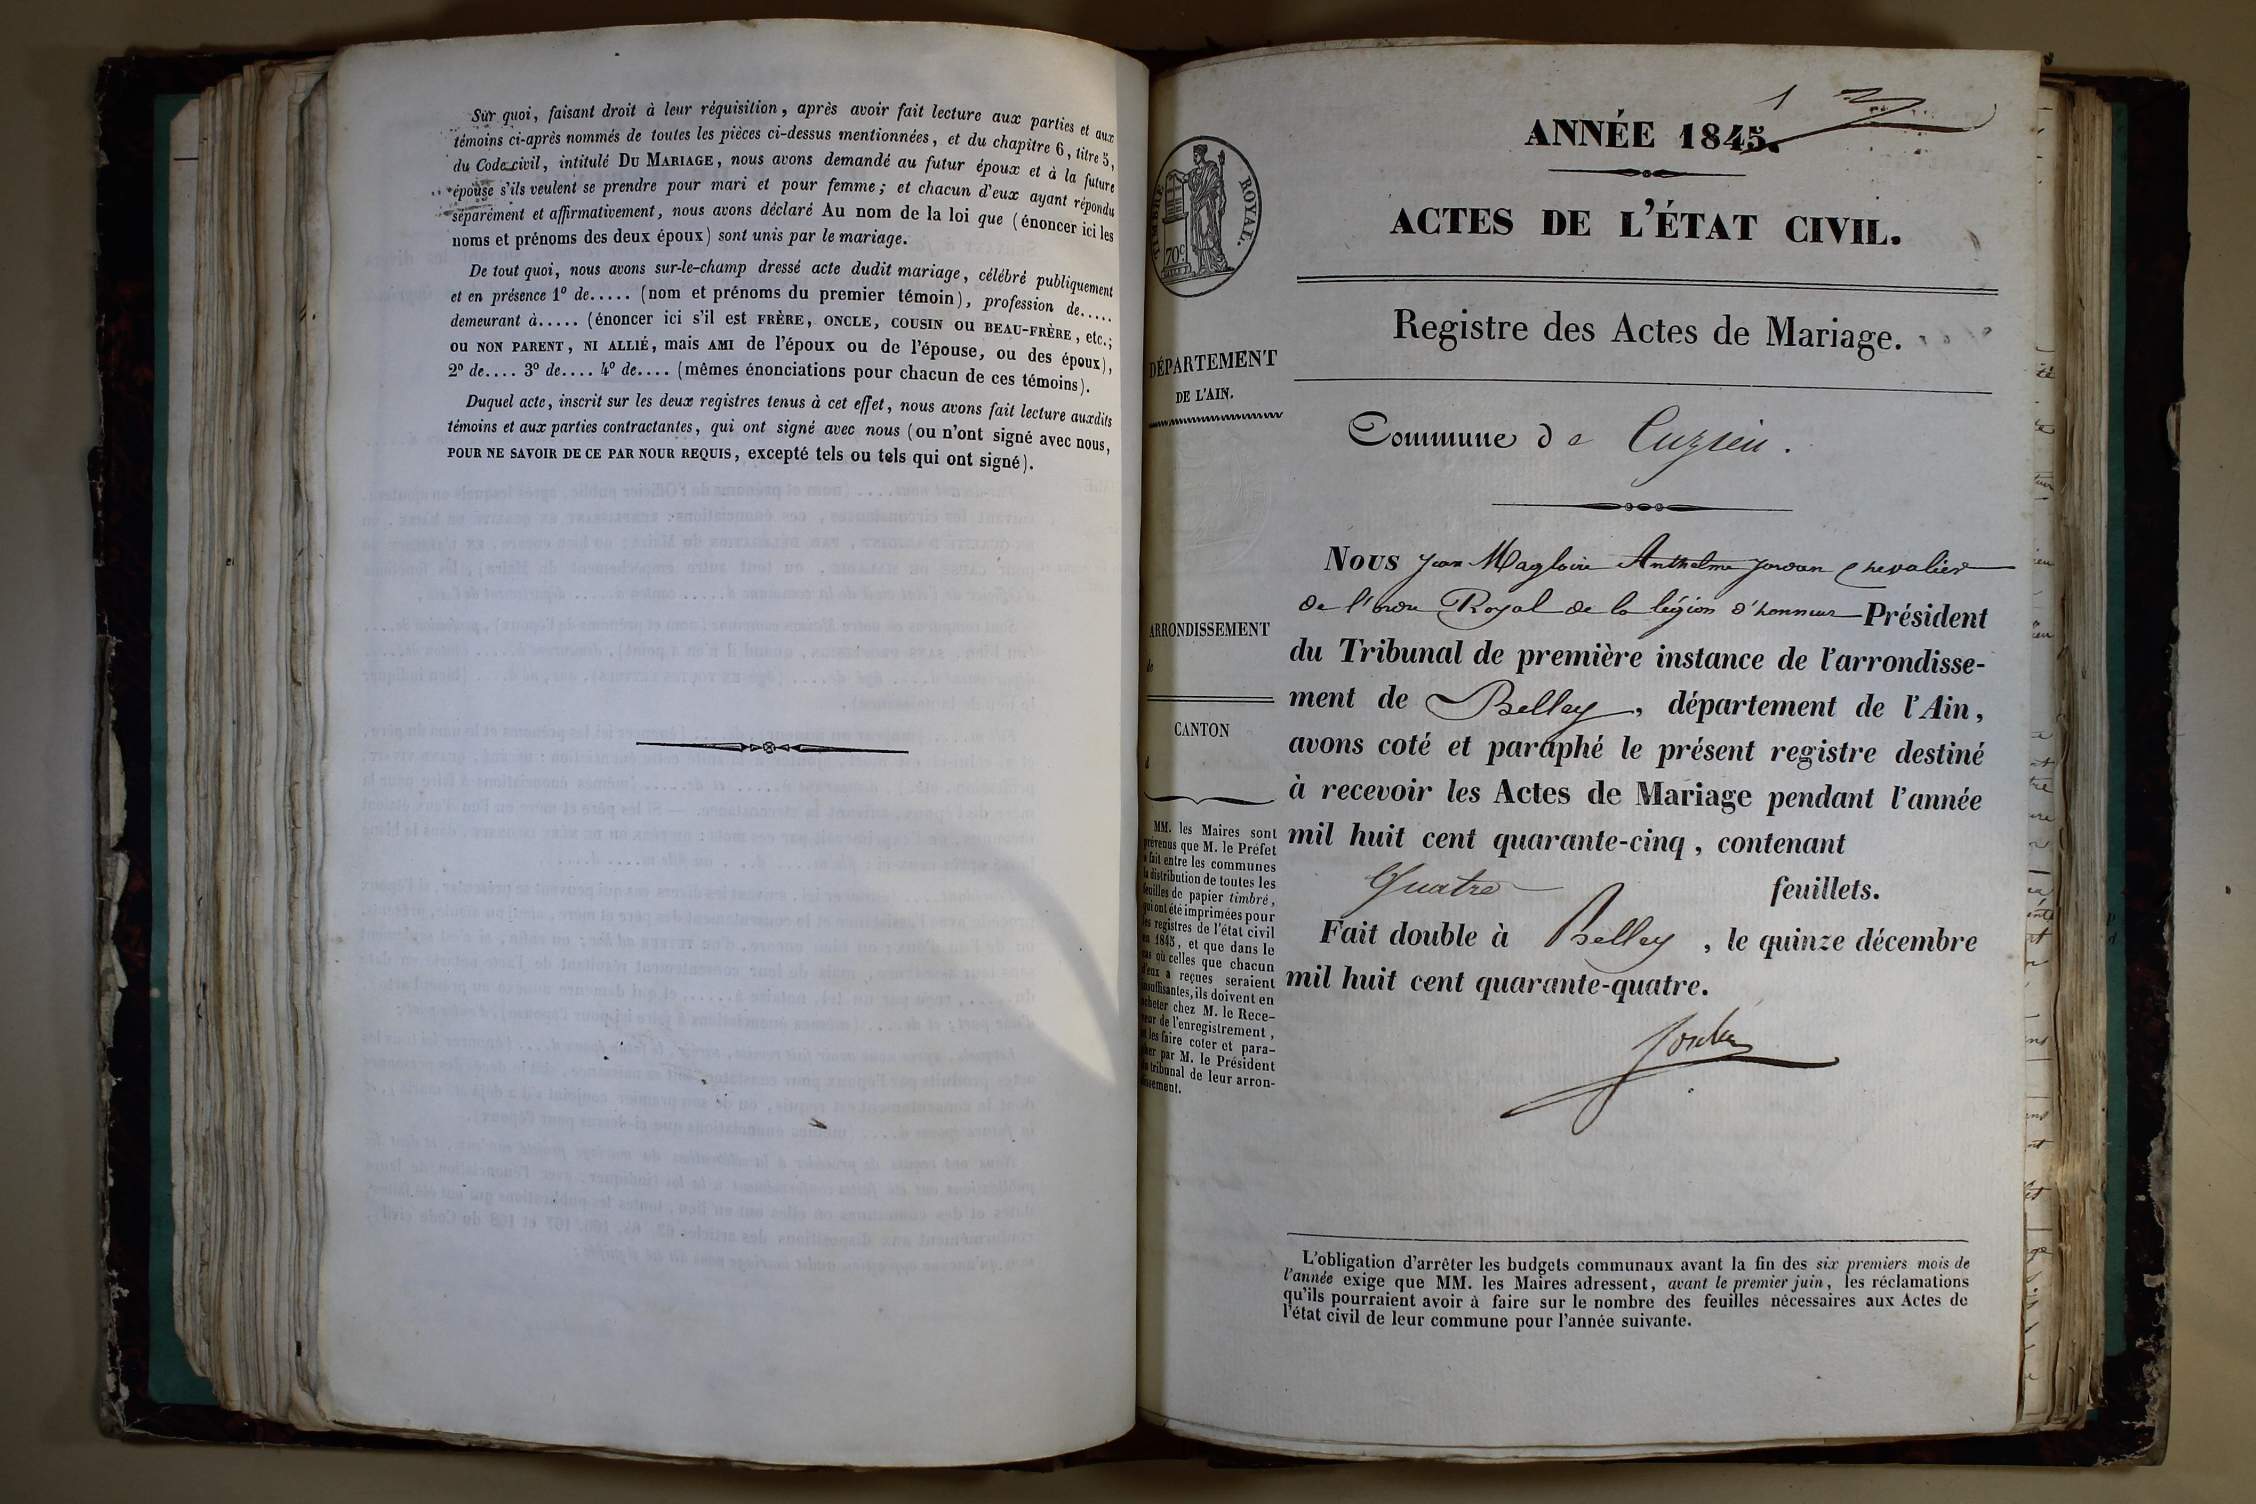 Sur quoi, faisant droit à leur réquisition, après avoir fait lecture aux parties et aux
témoins ci-après nommés de toutes les pièces ci-dessus mentionnées, et du chapitre 6, titre 5,
du Code civil, intitulé DU MARIAGE, nous avons demandé au futur époux et à la future
épouse s'ils veulent se prendre pour mari et pour femme; et chacun d'eux ayant répondu
séparément et affirmativement, nous avons déclaré Au nom de la loi que (énoncer ici les
noms et prénoms des deux époux) sont unis par le mariage.
De tout quoi, nous avons sur-le-champ dressé acte dudit mariage, célébré publiquement
et en présence 1º de..... (nom et prénoms du premier témoin), profession de.....
demeurant à..... (énoncer ici s'il est FRÈRE, ONCLE, COUSIN OU BEAU-FRÈRE, etc.;
ou NON PARENT, NI ALLIÉ, mais AMI de l'époux ou de l'épouse, ou des époux),
2º de.... 3º de.... 4º de.... (mêmes énonciations pour chacun de ces témoins).
Duquel acte, inscrit sur les deux registres tenus à cet effet, nous avons fait lecture auxdits
témoins et aux parties contractantes, qui ont signé avec nous (ou n'ont signé avec nous,
POUR NE SAVOIR DE CE PAR NOUR REQUIS, excepté tels ou tels qui ont signé).
1
ANNÉE 1845.
TIMBRE ROYAL.
70c
ACTES DE L'ÉTAT CIVIL.
Registre des Actes de Mariage.
DÉPARTEMENT
DE L'AIN.
Commune de Cuzieu.
ARRONDISSEMENT
de
CANTON
d
MM. les Maires sont
prévenus que M. le Préfet
a fait entre les communes
la distribution de toutes les
feuilles de papier timbré,
qui ont été imprimées pour
les registres de l'état civil
en 1845, et que dans le
cas où celles que chacun
d'eux a reçues seraient
insuffisantes, ils doivent en
acheter chez M. le Rece-
veur de l'enregistrement,
et les faire coter et para-
pher par M. le Président
du tribunal de leur arron-
dissement.
Nous Jean Magloire Anthelme Jordan Chevalier
de l'ordre Royal de la légion d'honneur Président
du Tribunal de première instance de l'arrondisse-
ment de Belley, département de l'Ain,
avons coté et paraphé le présent registre destiné
à recevoir les Actes de Mariage pendant l'année
mil huit cent quarante-cinq, contenant
Quatre feuillets.
Fait double à Belley, le quinze décembre
mil huit cent quarante-quatre.
Jordan
L'obligation d'arrêter les budgets communaux avant la fin des six premiers mois de
l'année exige que MM. les Maires adressent, avant le premier juin, les réclamations
qu'ils pourraient avoir à faire sur le nombre des feuilles nécessaires aux Actes de
l'état civil de leur commune pour l'année suivante.